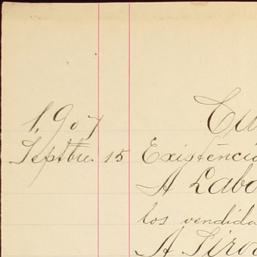 1907
Septbre. 15 Existencia
A Labo
los vendida
A Tiro